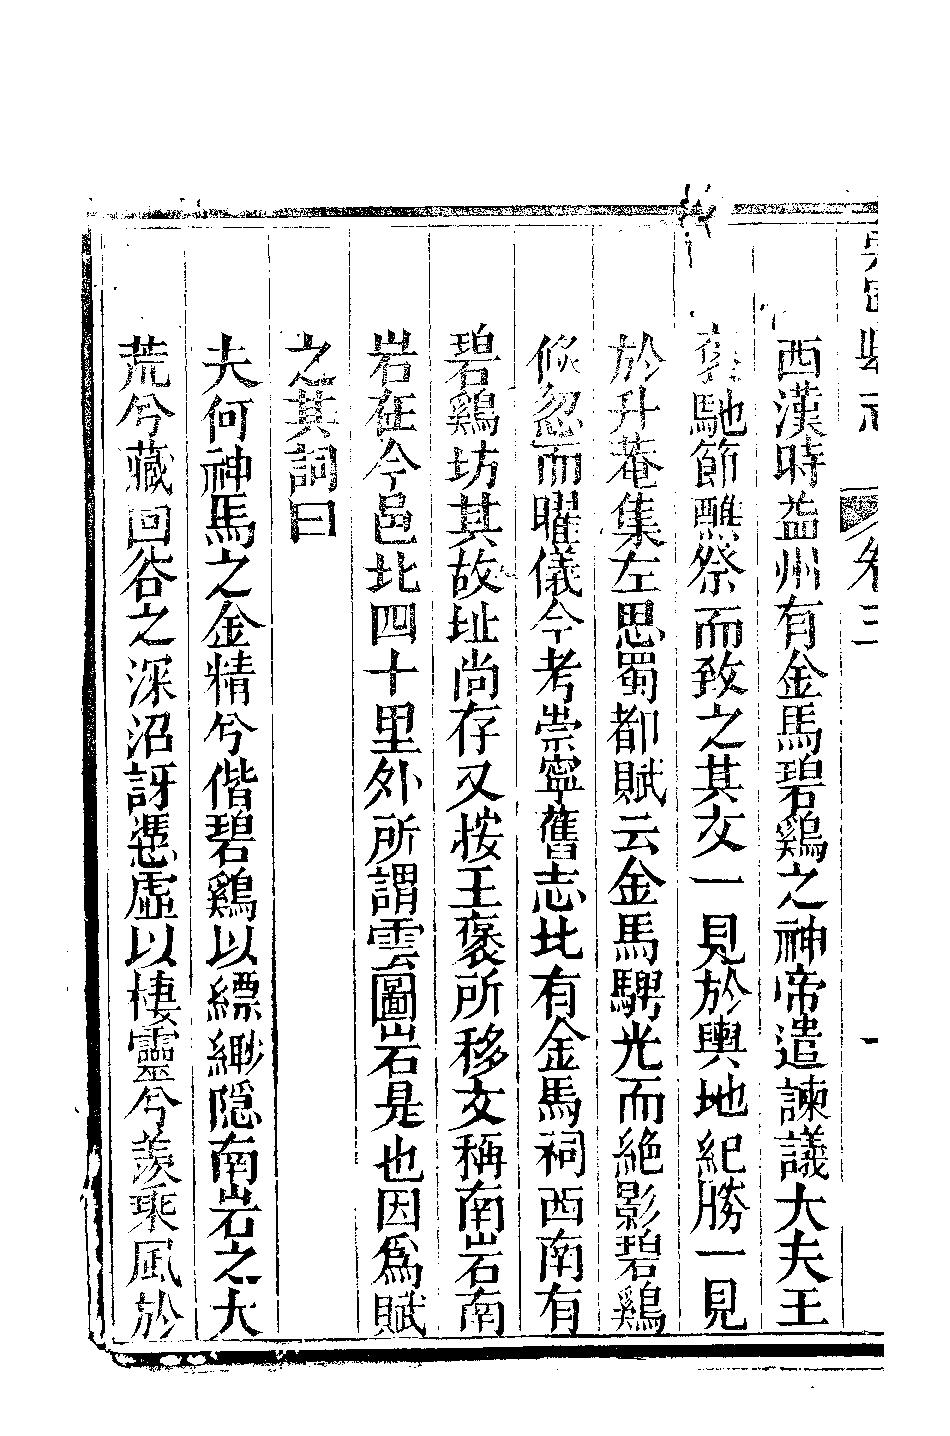 卷三
西漢時益州有金馬碧鷄之神帝遣諫議大夫王
褒馳節醮祭而致之其文一見於輿地紀勝一見
於升菴集左思蜀都賦云金馬騁光而絶影碧鷄
倐忽而曜儀今考崇寧舊志北有金馬祠西南有
碧鷄坊其故址尚存又按王褒所移文稱南岩南
岩在今邑北四十里外所謂雲圖岩是也因爲賦
之其詞曰
夫何神馬之金精兮偕碧鷄以縹緲隠南岩之大
荒兮藏回谷之深沼訝憑虛以棲靈兮羨乘風於